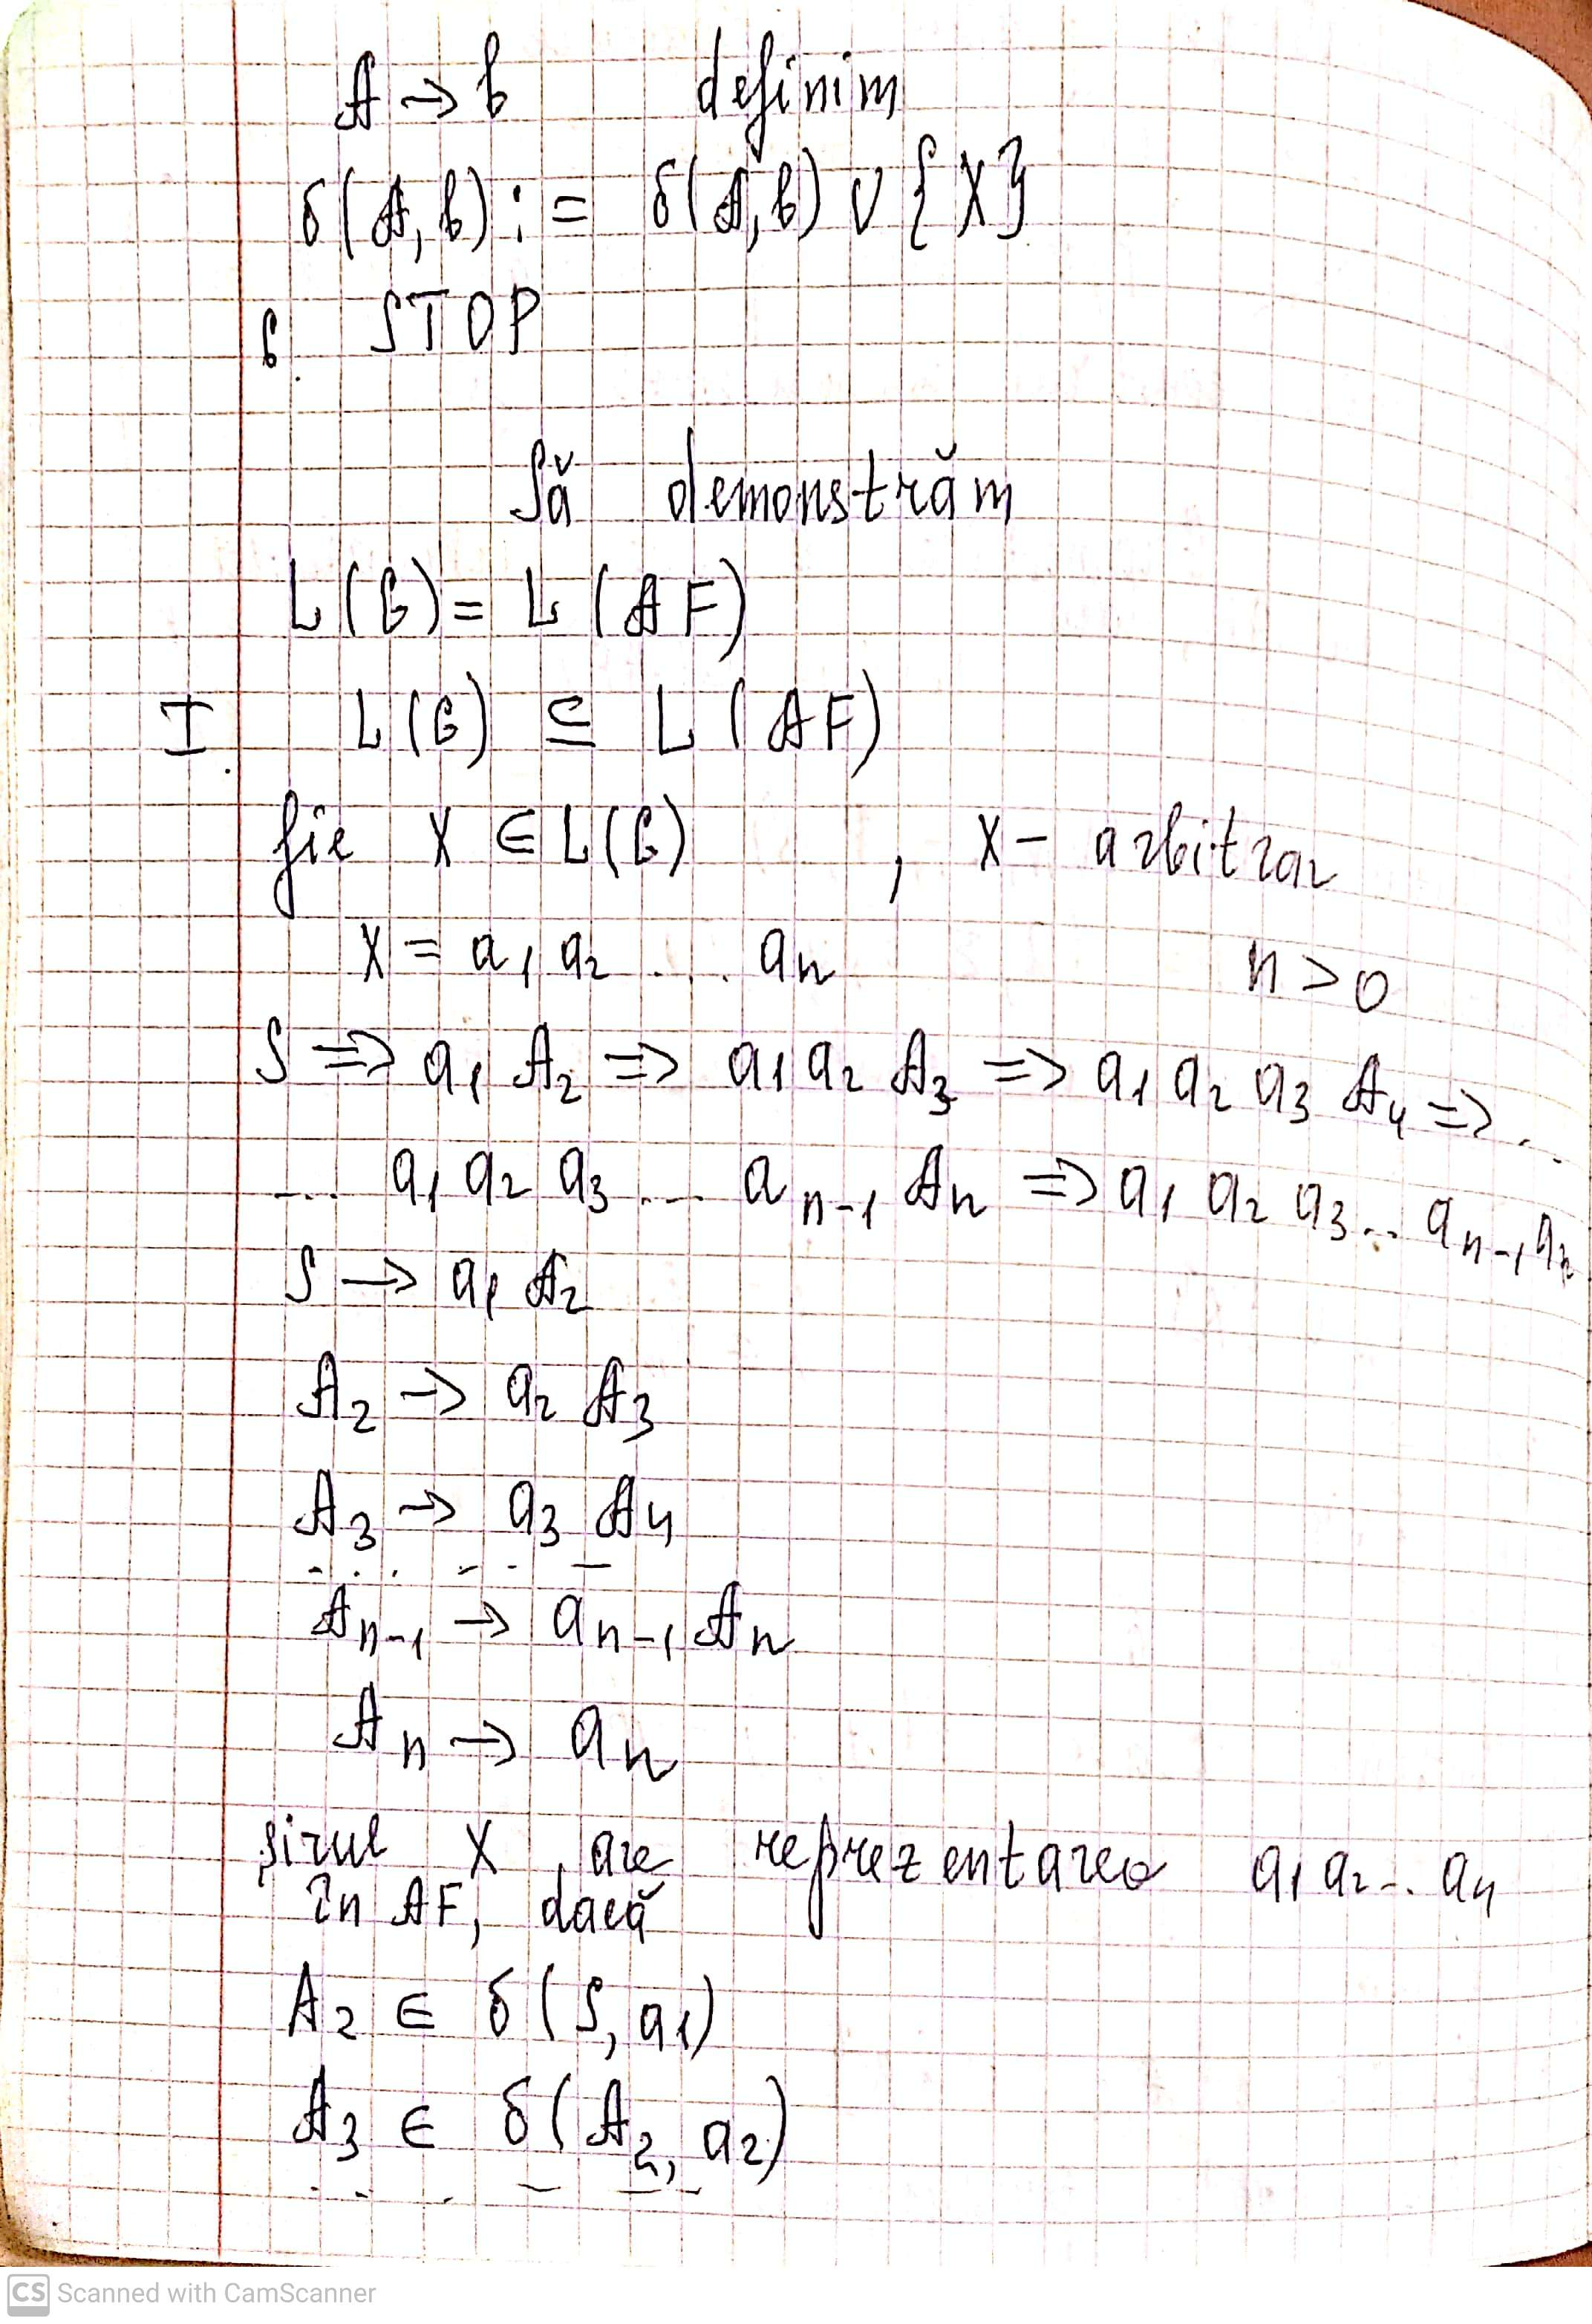 A → b definim
δ(A, b) := δ(A, b) ∪ {X}
6. STOP
Să demonstrăm
L(G) = L(AF)
I. L(G) ⊆ L(AF)
fie X ∈ L(G) , X - arbitrar
X = a₁ a₂ ... aₙ n > 0
S ⇒ a₁ A₂ ⇒ a₁ a₂ A₃ ⇒ a₁ a₂ a₃ A₄ ⇒ ...
... a₁ a₂ a₃ ... aₙ₋₁ Aₙ ⇒ a₁ a₂ a₃ ... aₙ₋₁ aₙ
S → a₁ A₂
A₂ → a₂ A₃
A₃ → a₃ A₄
.... - - —
Aₙ₋₁ → aₙ₋₁ Aₙ
Aₙ → aₙ
șirul X are reprezentarea a₁ a₂ ... aₙ
în AF, dacă
A₂ ∈ δ(S, a₁)
A₃ ∈ δ(A₂, a₂)
.. - . – — -
CS Scanned with CamScanner